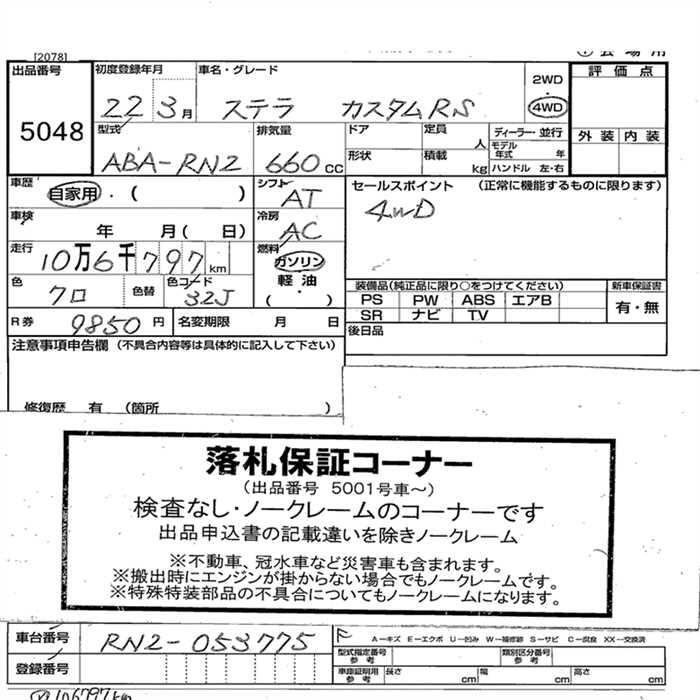 [2078]
出品番号
5048
初度登録年月
22 3月
車名・グレード
ステラ カスタムRS
2WD
4WD
評価点
外装 内装
型式
ABA-RN2
排気量
660cc
ドア
形状
定員 人
積載 kg
ディーラー・並行
モデル年式 年
ハンドル 左・右
車歴
自家用・( )
シフト
AT
セールスポイント (正常に機能するものに限ります)
4WD
車検
年 月( 日)
冷房
AC
走行
10万6千797km
燃料
ガソリン
軽油
( )
色
クロ
色替
色コード
32J
装備品(純正品に限り○をつけてください)
新車保証書
PS PW ABS エアB
有・無
SR ナビ TV
R券 9850円
名変期限 月 日
後日品
注意事項申告欄(不具合内容等は具体的に記入して下さい)
修復歴 有 (箇所 )
落札保証コーナー
(出品番号 5001号車~)
検査なし・ノークレームのコーナーです
出品申込書の記載違いを除きノークレーム
※不動車、冠水車など災害車も含まれます。
※搬出時にエンジンが掛からない場合でもノークレームです。
※特殊特装部品の不具合についてもノークレームになります。
車台番号
RN2-053775
A-キズ E-エクボ U-凹み W-補修跡 S-サビ C-腐食 XX-交換済
登録番号
型式指定番号参考
類別区分番号参考
車庫証明用参考
長さ cm
幅 cm
高さ cm
106797km